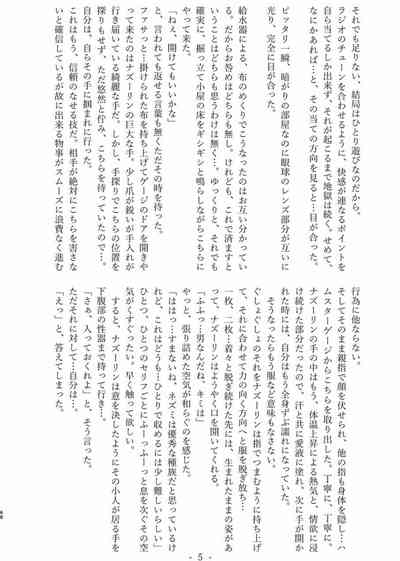 それでも足りない、結局はひとり遊びなのだから。
ラジオのチューンを合わせるように、快感が連なるポイントを
自ら当てるしか出来ず、それが起こるまで地獄は続く。せめて、
なにかあれば…と、その当ての方向を見ると…目が合った。
ピッタリ一瞬、暗がりの部屋なのに眼球のレンズ部分が互いに
光り、完全に目が合った。
給水器による、布のめくりでこうなったのはお互い分かってい
る。だからお咎めはどちらも無し。けれども、これで済ますと
いうことはどちらも思うわけは無く…。ゆっくりと、それでも
確実に、掘っ立て小屋の床をギシギシと鳴らしながらこちらに
やって来た。
「ねぇ、開けてもいいかな」
と、言われても返せる言葉も無くただその時を待った。
ファサっと…掛けられた布を持ち上げてゲージのドアを開きや
って来たのはナズーリンの巨大な手。少し爪が鋭いが手入れが
行き届いている綺麗な手だ。しかし、手探りでこちらの位置を
探りもせず、ただ悠然と佇み、こちらを待っていたので…。
自分は、自らその手に掴まれに行った。
これはもう、信頼のなせる技だ。相手が絶対にこちらを害さな
いと確信しているが故に出来る物事がスムーズに浪費なく進む
行為に他ならない。
そしてそのまま親指で顔を伏せられ、他の指も身体を隠し…ハ
ムスターゲージからこちらを取り出した。丁寧に、丁寧に。
ナズーリンの手の中はもう、体温上昇による熱気と、情欲に浸
け続けた部分だったので、汗と共に愛液に塗れ、次に手が開か
れた時には、自分はもう全身ずぶ濡れになっていた。
そうなったらもう服など意味もなさない。
ぐしょぐしょのそれをナズーリンは指でつまむように持ち上げ
て、それに合わせて力の向く方向へと服を脱ぎ放ち…
一枚、二枚…着々と脱ぎ続けた先には、生まれたままの姿があ
って、ナズーリンはようやく口を開いてくれる。
「ふふっ…男なんだね、キミは」
やっと、張り詰めた空気が和らぐのを感じた。
「ははっ…すまないね、ネズミは優秀な種族だと思っているけ
れど、これはどうも…ひとりで収めるには少し難しいらしい」
ひとつ、ひとつのセリフごとにふーっふーっと息を次ぐその空
気がくすぐったい。早く触って欲しい。
すると、ナズーリンは意を決したようにその小人が居る手を
下腹部の性器まで持って行き…
「さぁ、入っておくれよ」と、そう言った。
ただそれに対して…自分は…。
「えっ」と、答えてしまった。
- 5 -